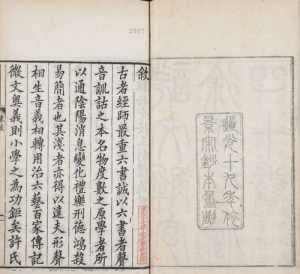 道光十九年依
景宋鈔本重雕
敘
古者經師最重六書誠以六書者聲
音訓詁之本名物度數之原學者所
以通陰陽消息變化禮樂刑德鴻殺
易簡者也其淺者亦得以達夫形聲
相生音義相轉用治六藝百家傳記
微文奧義則小學之為功鉅矣許氏